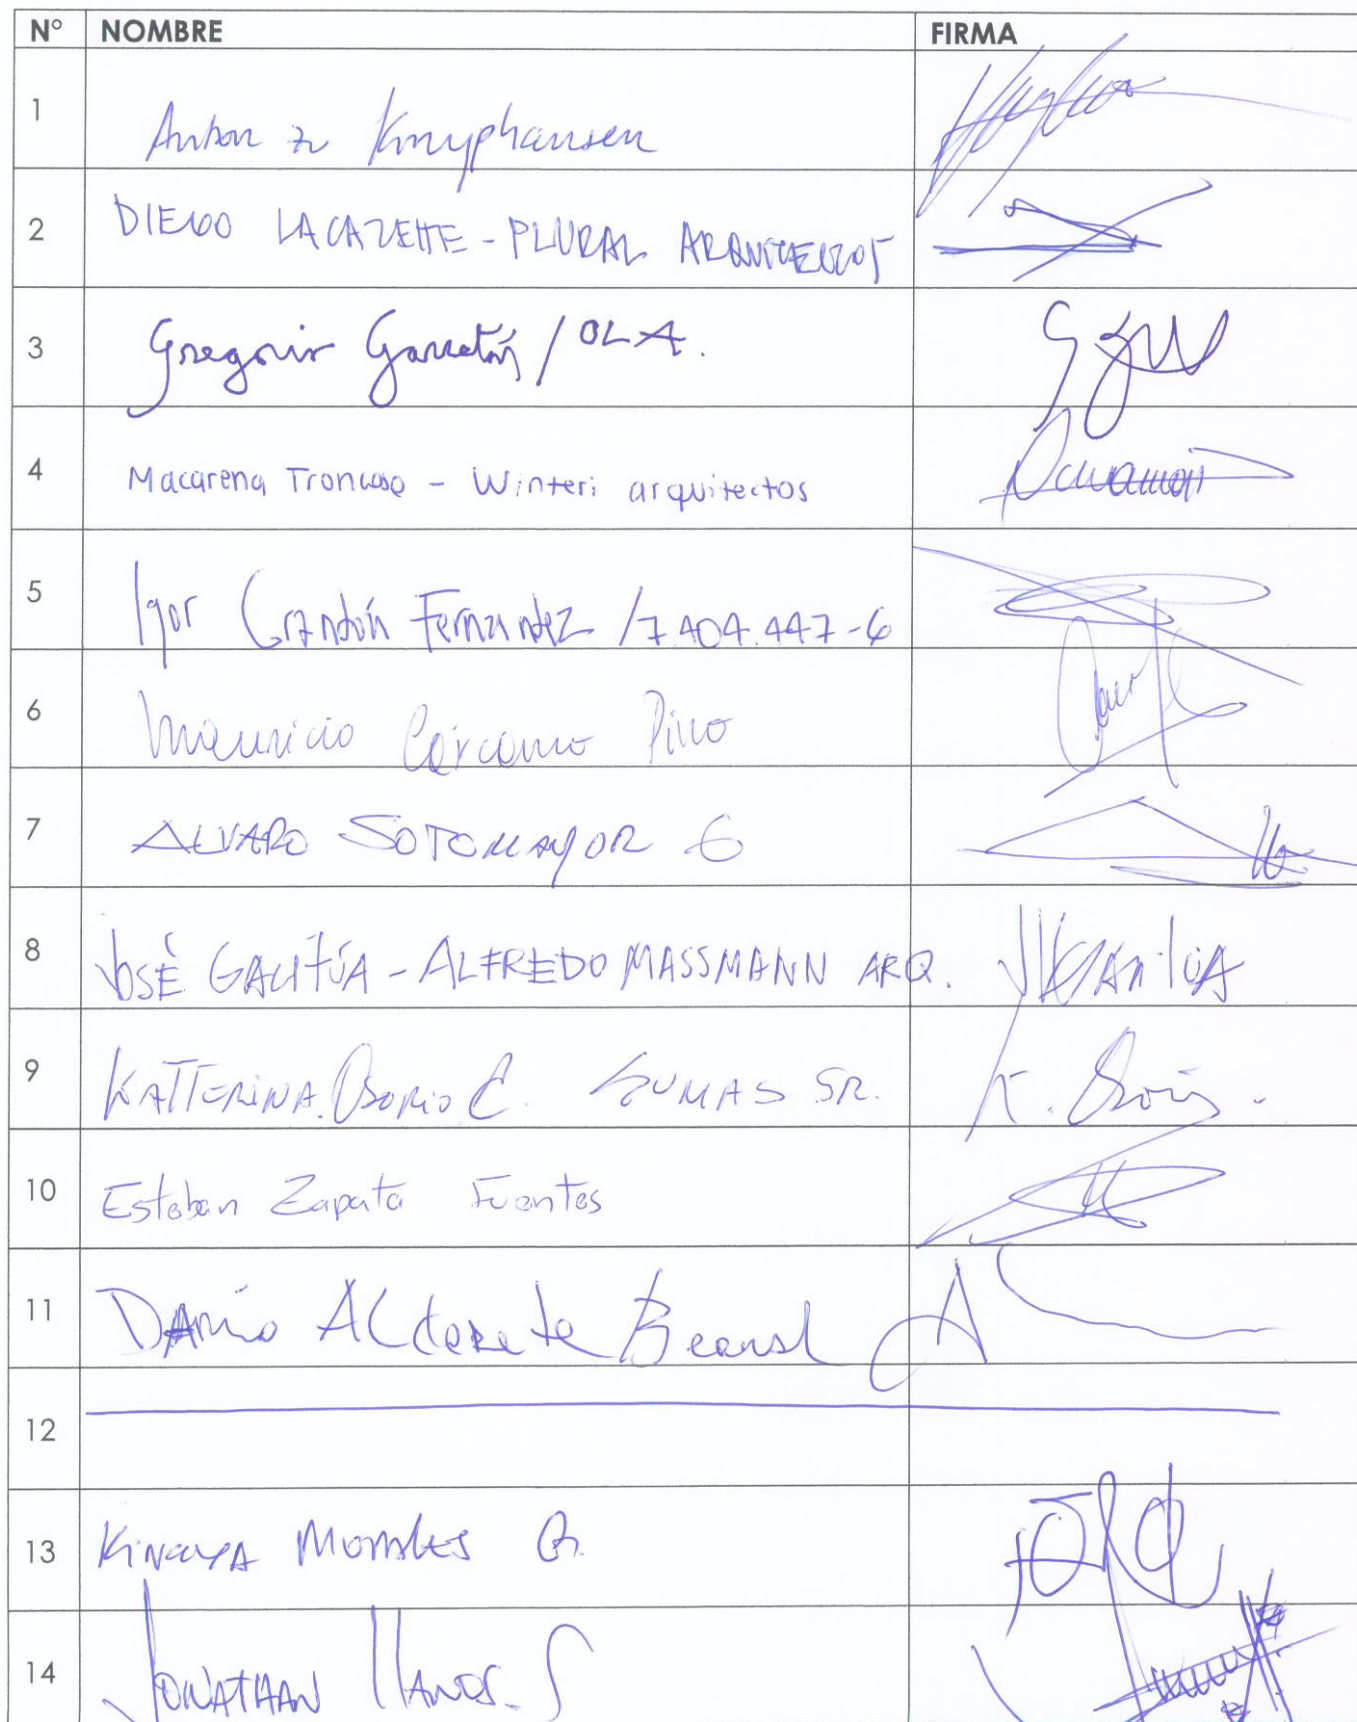 N° NOMBRE FIRMA
1 Anton zu Knyphausen
2 DIEGO LACAZETTE - PLURAL ARQUITECTOS
3 Gregorio Garretón / OLA.
4 Macarena Troncoso - Winteri arquitectos
5 Igor Grandón Fernandez / 7.404.447-6
6 Mauricio Cárcamo Pino
7 ALVARO SOTOMAYOR G
8 JOSÉ GACITÚA - ALFREDO MASSMANN ARQ.
9 KATTERINA. OSORIO C. SUMAS SR. K. Osorio.
10 Esteban Zapata Fuentes
11 DARÍO ALderete
12
13 Morales
14 JONATHAN LLANOS. S